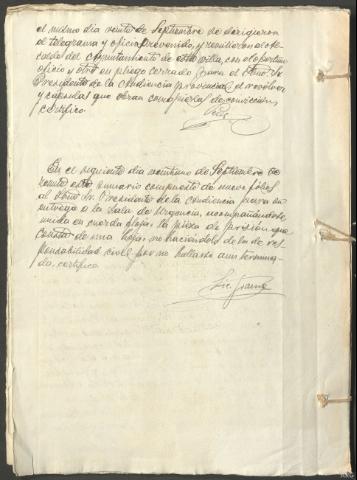 el mismo dia veinte de Septiembre se dirigieron
el telegrama y oficio prevenido, y remitieron al Al-
calde del Ayuntamiento de esta villa, con el oportuno
oficio y otro en pliego cerrado para el Iltmo. Sr.
Presidente de la Audiencia provincial el revolver
y capsulas que obran como pieza de conviccion,
certifico.
En el siguiente dia veintiuno de Septiembre se
remite este sumario compuesto de nueve folios
al Iltmo Sr. Presidente de la Audiencia para su
entrega a la Sala de Urgencia, acompañandose
unida en cuerda floja la pieza de prision que
consta de una hoja; no haciendolo de la de res-
ponsabilidad civil por no hallarse aun termina-
da. certifico